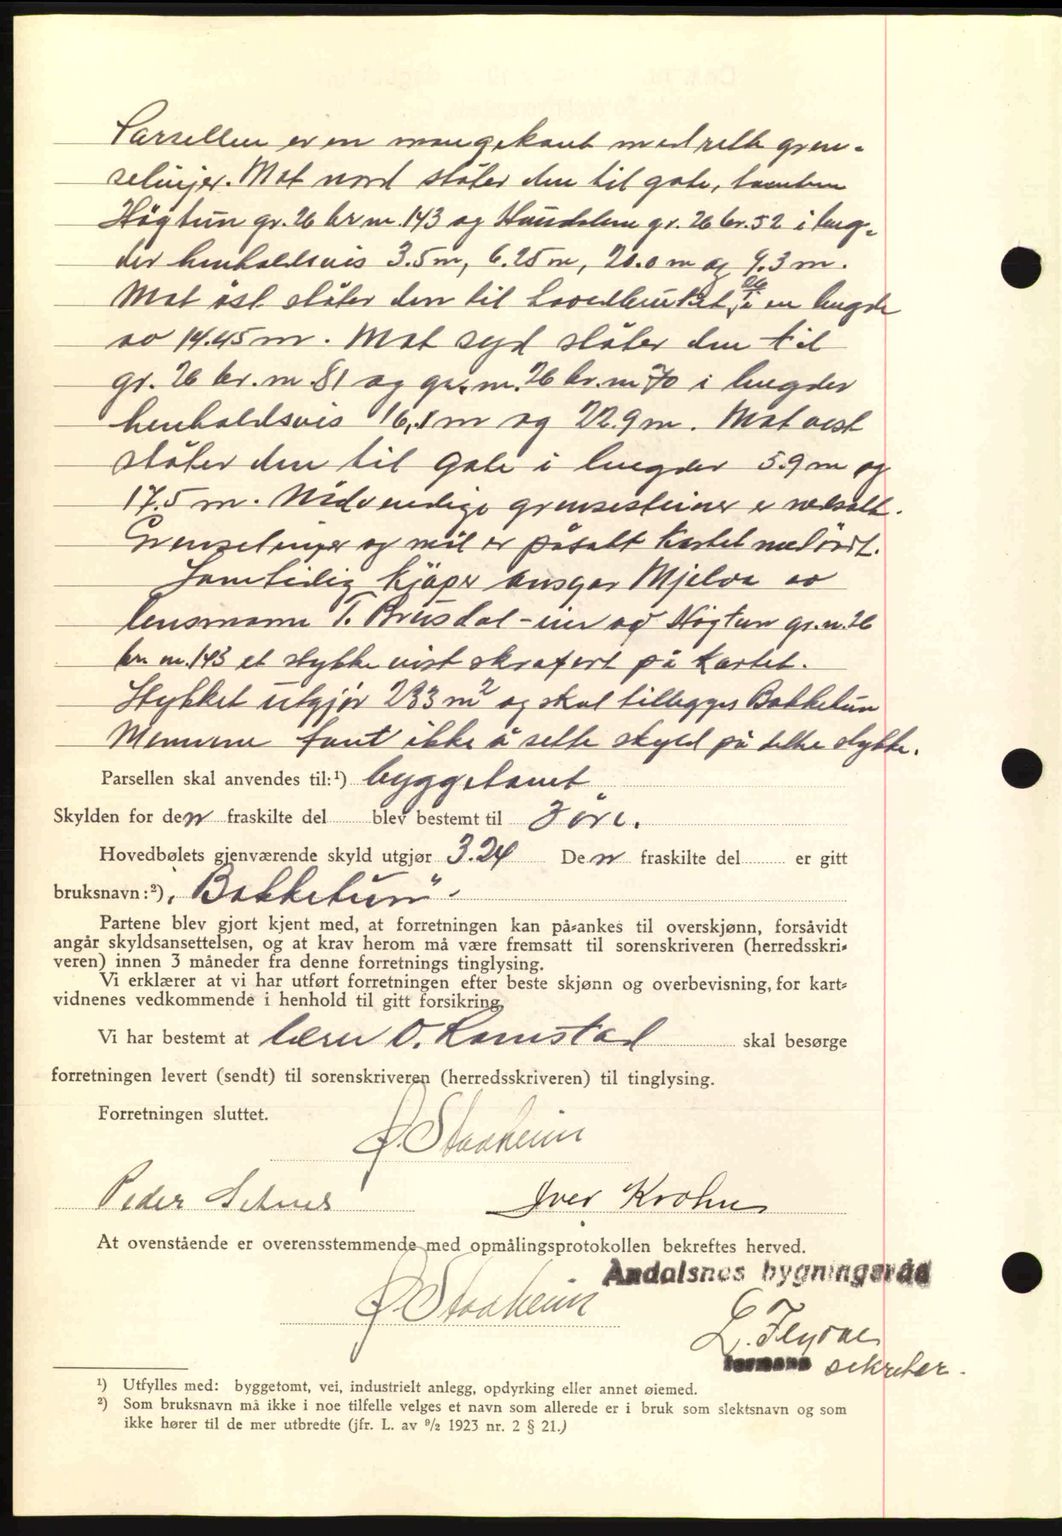 Parsellen er en mangekant med rette gren-
selinjer. Mot nord støter den til gate, tomten
Høgtun gr. 26 br.nr. 143 og gr. 26 br. 52 i leng-
der henholdsvis 3.5 m, 6.25 m, 20.0 m og 9.3 m.
Mot øst støter den til hovedbruket i en lengde
av 14.45 m. Mot syd støter den til
gr. 26 br. nr. 81 og gr. nr. 26 br. nr. 70 i lengder
henholdsvis 16,1 m og 22.9 m. Mot vest
støter den til gate i lengder 5.9 m og
17.5 m. Nødvendige grensesteiner er nedsatt.
Grenselinjer og mål er påsatt kartet med rødt.
Samtidig kjøper Ansgar Mjelva av
lensmann T. Brusdal - eier av Høgtun gr. nr. 26
br. nr. 143 et stykke vist skrafert på kartet.
Stykket utgjør 233 m² og skal tillegges Bakketun
Mennene fant ikke å sette skyld på dette stykke.
Parsellen skal anvendes til:¹) byggetomt
Skylden for den fraskilte del blev bestemt til 2 öre.
Hovedbølets gjenværende skyld utgjør 3.24 Den fraskilte del er gitt
bruksnavn:²) „Bakketun"
Partene blev gjort kjent med, at forretningen kan på-ankes til overskjønn, forsåvidt
angår skyldsansettelsen, og at krav herom må være fremsatt til sorenskriveren (herredsskri-
veren) innen 3 måneder fra denne forretnings tinglysing.
Vi erklærer at vi har utført forretningen efter beste skjønn og overbevisning, for kart-
vidnenes vedkommende i henhold til gitt forsikring.
Vi har bestemt at lærer O. Ramstad skal besørge
forretningen levert (sendt) til sorenskriveren (herredsskriveren) til tinglysing.
Forretningen sluttet.
P. Staaheim
Peder Setnes Iver Krohn
At ovenstående er overensstemmende med opmålingsprotokollen bekreftes herved.
Åndalsnes bygningsråd
P. Staaheim
sekretær.
formann
¹) Utfylles med: byggetomt, vei, industrielt anlegg, opdyrking eller annet øiemed.
²) Som bruksnavn må ikke i noe tilfelle velges et navn som allerede er i bruk som slektsnavn og som
ikke hører til de mer utbredte (jfr. L. av ⁹/₂ 1923 nr. 2 § 21.)